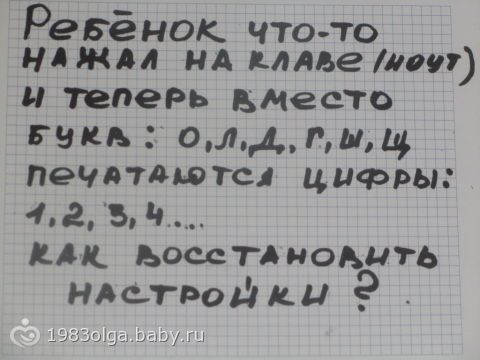 Ребёнок что-то
нажал на клаве (ноут)
и теперь вместо
букв: о, л, д, г, ш, щ
печатаются цифры:
1, 2, 3, 4....
как восстановить
настройки?
1983olga.baby.ru